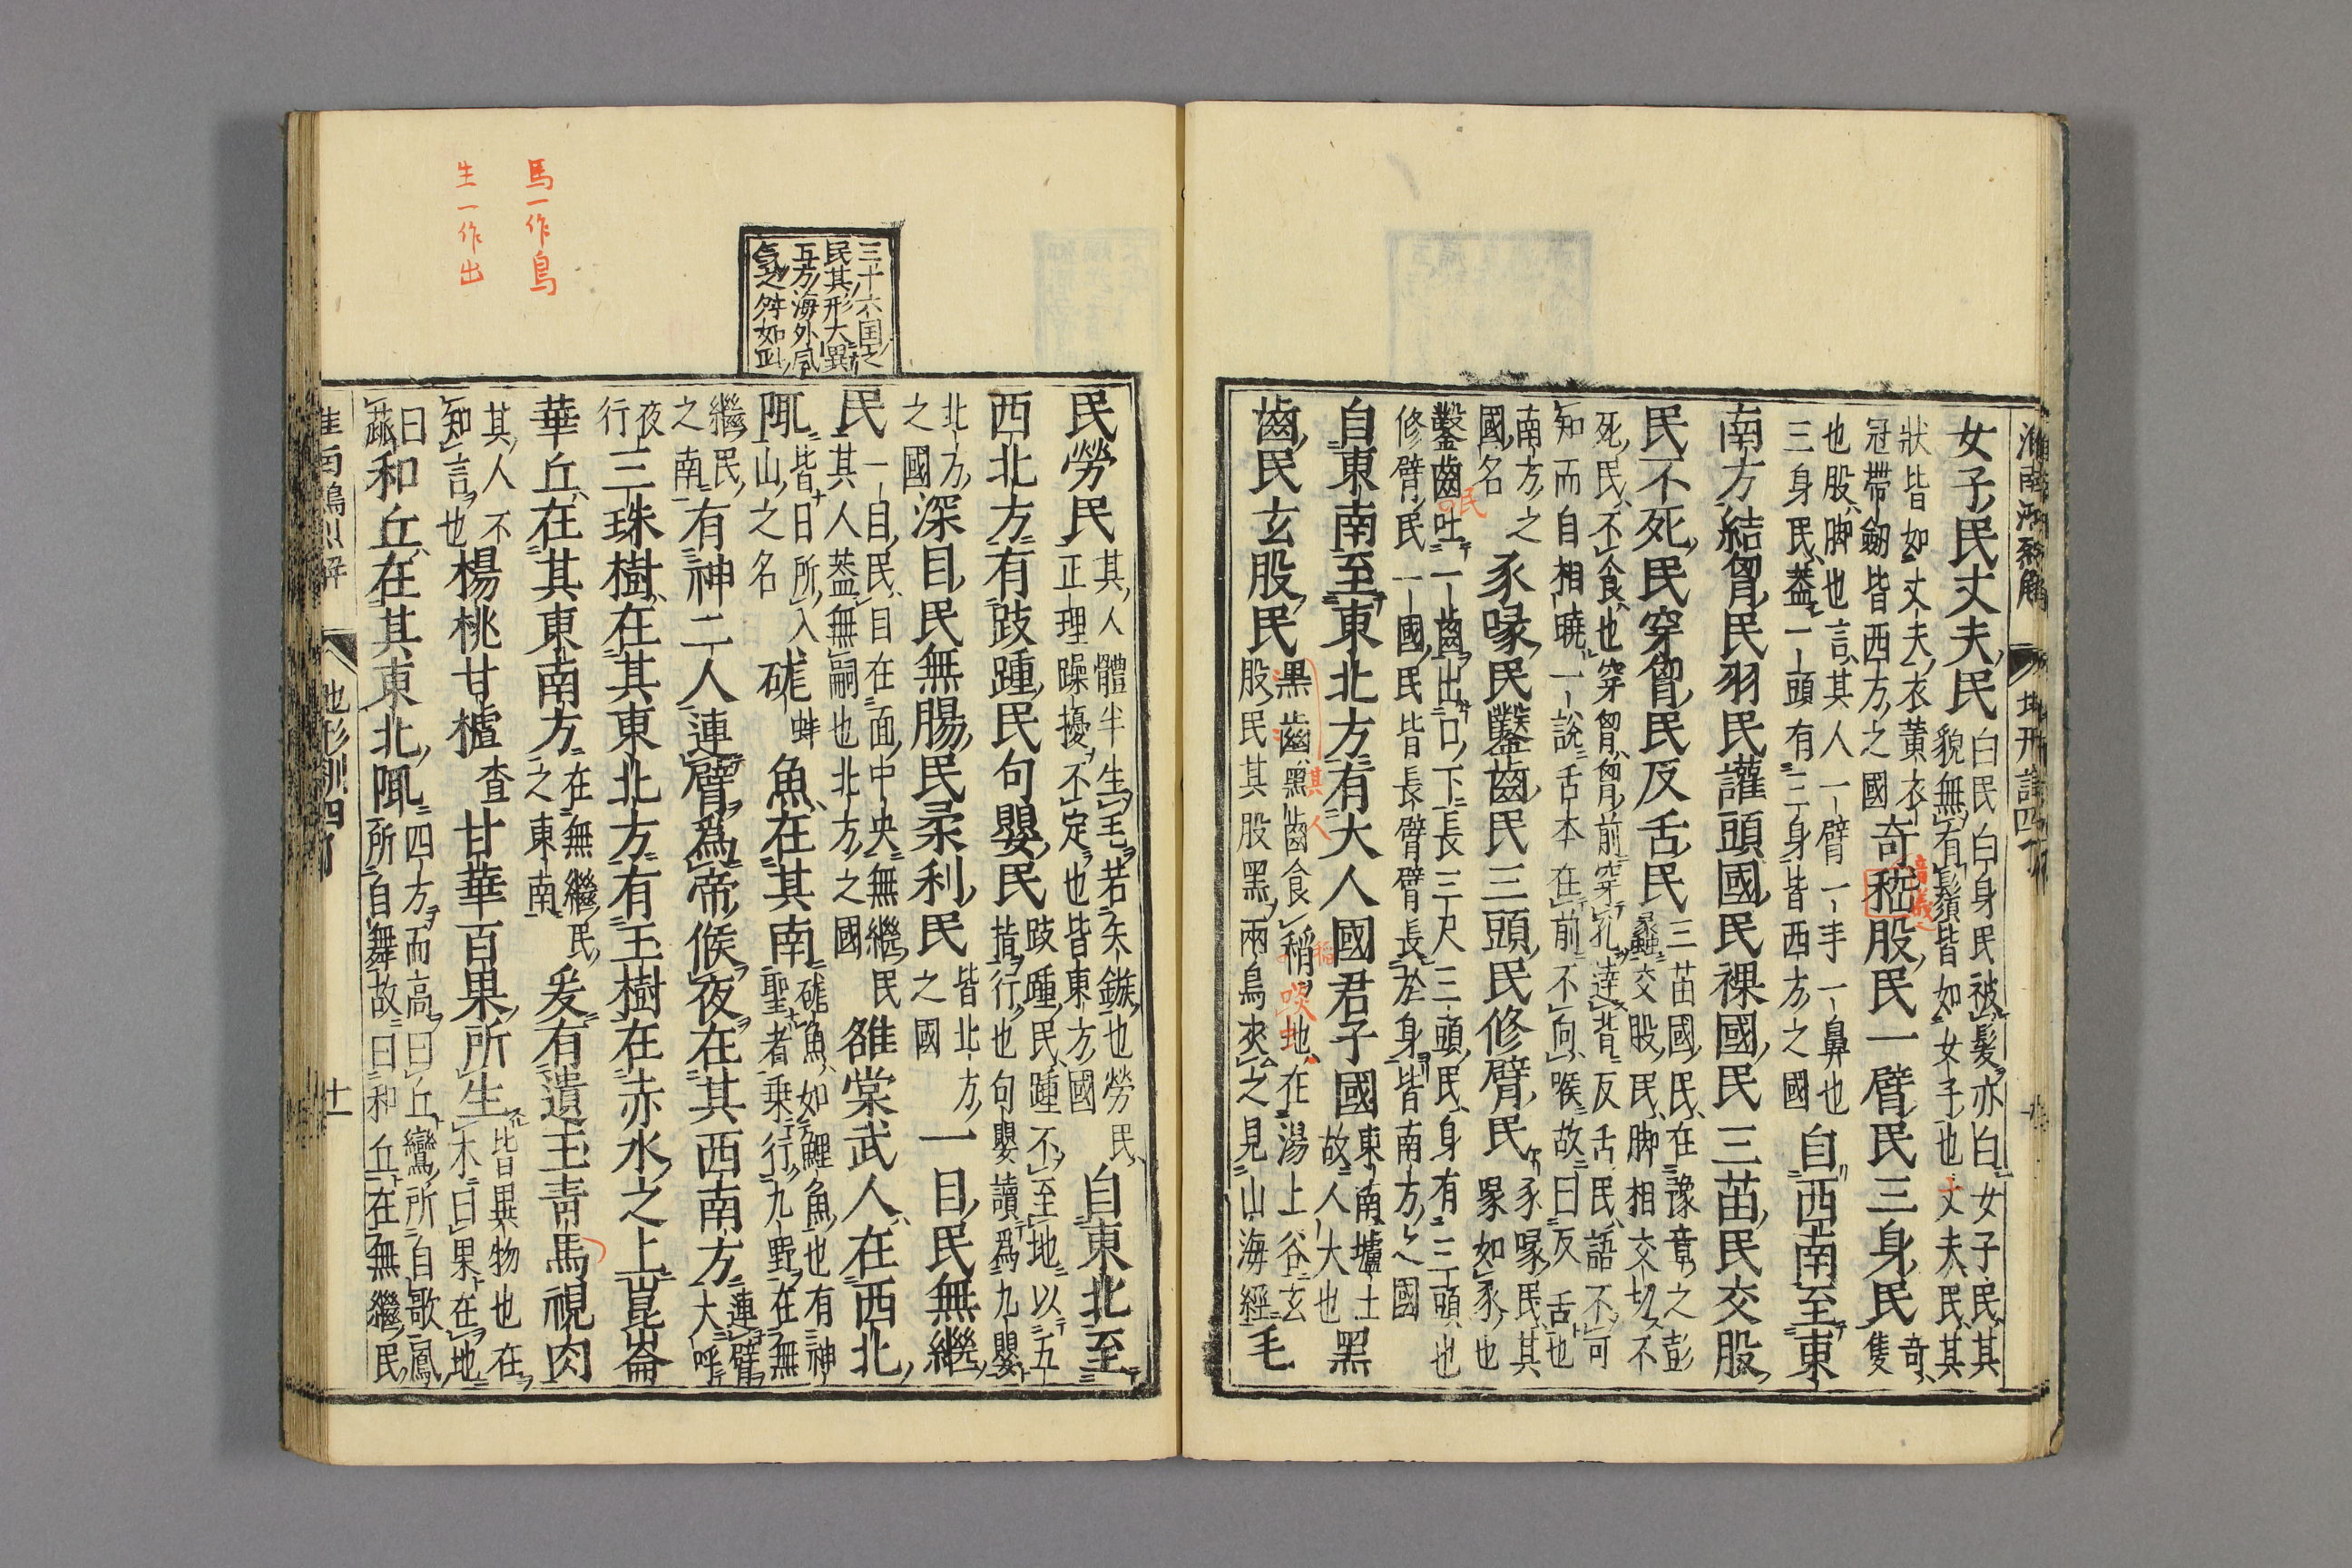 淮南鴻烈解 地形訓四
女子民丈夫民白民白身民被髮亦白女子民其貌無有鬚皆如女子也丈夫民其
狀皆如丈夫衣黃衣冠帶劔皆西方之國奇秅股民一臂民三身民奇隻
也股脚也言其人一臂一手一鼻也三身民蓋一頭有三身皆西方之國自西南至東
南方結胷民羽民讙頭國民裸國民三苗民交股
民不死民穿胷民反舌民三苗國民在豫章之彭蠡交股民脚相交切不
死民不食也穿胷胷前穿孔達背反舌民語不可知而自相曉一說舌本在前不向喉故曰反舌也
南方之國名豕喙民鑿齒民三頭民修臂民豕喙民其喙如豕也
鑿齒吐一齒出口下長三尺三頭民身有三頭也修臂民一國民皆長臂臂長於身皆南方之國
自東南至東北方有大人國君子國東南墟土故人大也黑
齒民玄股民黑齒黑齒食稻地在湯上谷玄股民其股黑兩鳥夾之見山海經毛
音義
民
其人
稻
啖蛇
三十六国之
民其形大異
五方海外風
氣之殊如此
馬一作鳥
生一作出
民勞民其人體半生毛若矢鏃也勞民正理躁擾不定也皆東方國自東北至
西北方有跂踵民句嬰民跂踵民踵不至地以五揩行也句嬰讀爲九嬰
北方之國深目民無腸民柔利民皆北方之國一目民無繼
民一目民目在面中央無繼民其人蓋無嗣也北方之國雒棠武人在西北
陬皆日所入山之名硥蚌魚在其南硥魚如鯉魚也有神聖者乘行九野在無
繼民之南有神二人連臂爲帝候夜在其西南方連臂大呼
夜行三珠樹在其東北方有玉樹在赤水之上崑崙
華丘在其東南方在無繼民之東南爰有遺玉青馬視肉
其人不知言也楊桃甘樝查甘華百果所生皆異物也在木曰果在地
曰蓏和丘在其東北陬四方而高曰丘鸞所自歌鳳所自舞故曰和丘在無繼民
淮南鴻烈解 地形訓四 十一